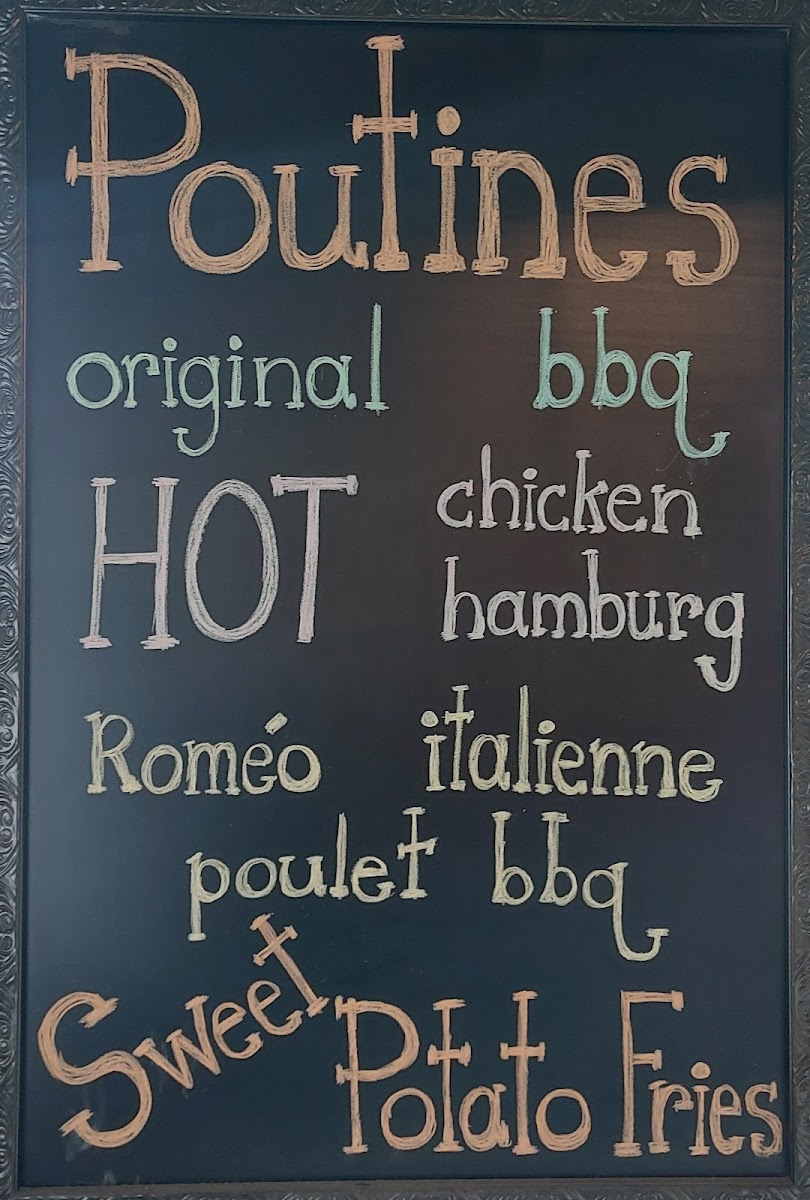 Poutines
original bbq
HOT chicken
hamburg
Roméo italienne
poulet bbq
Sweet Potato Fries